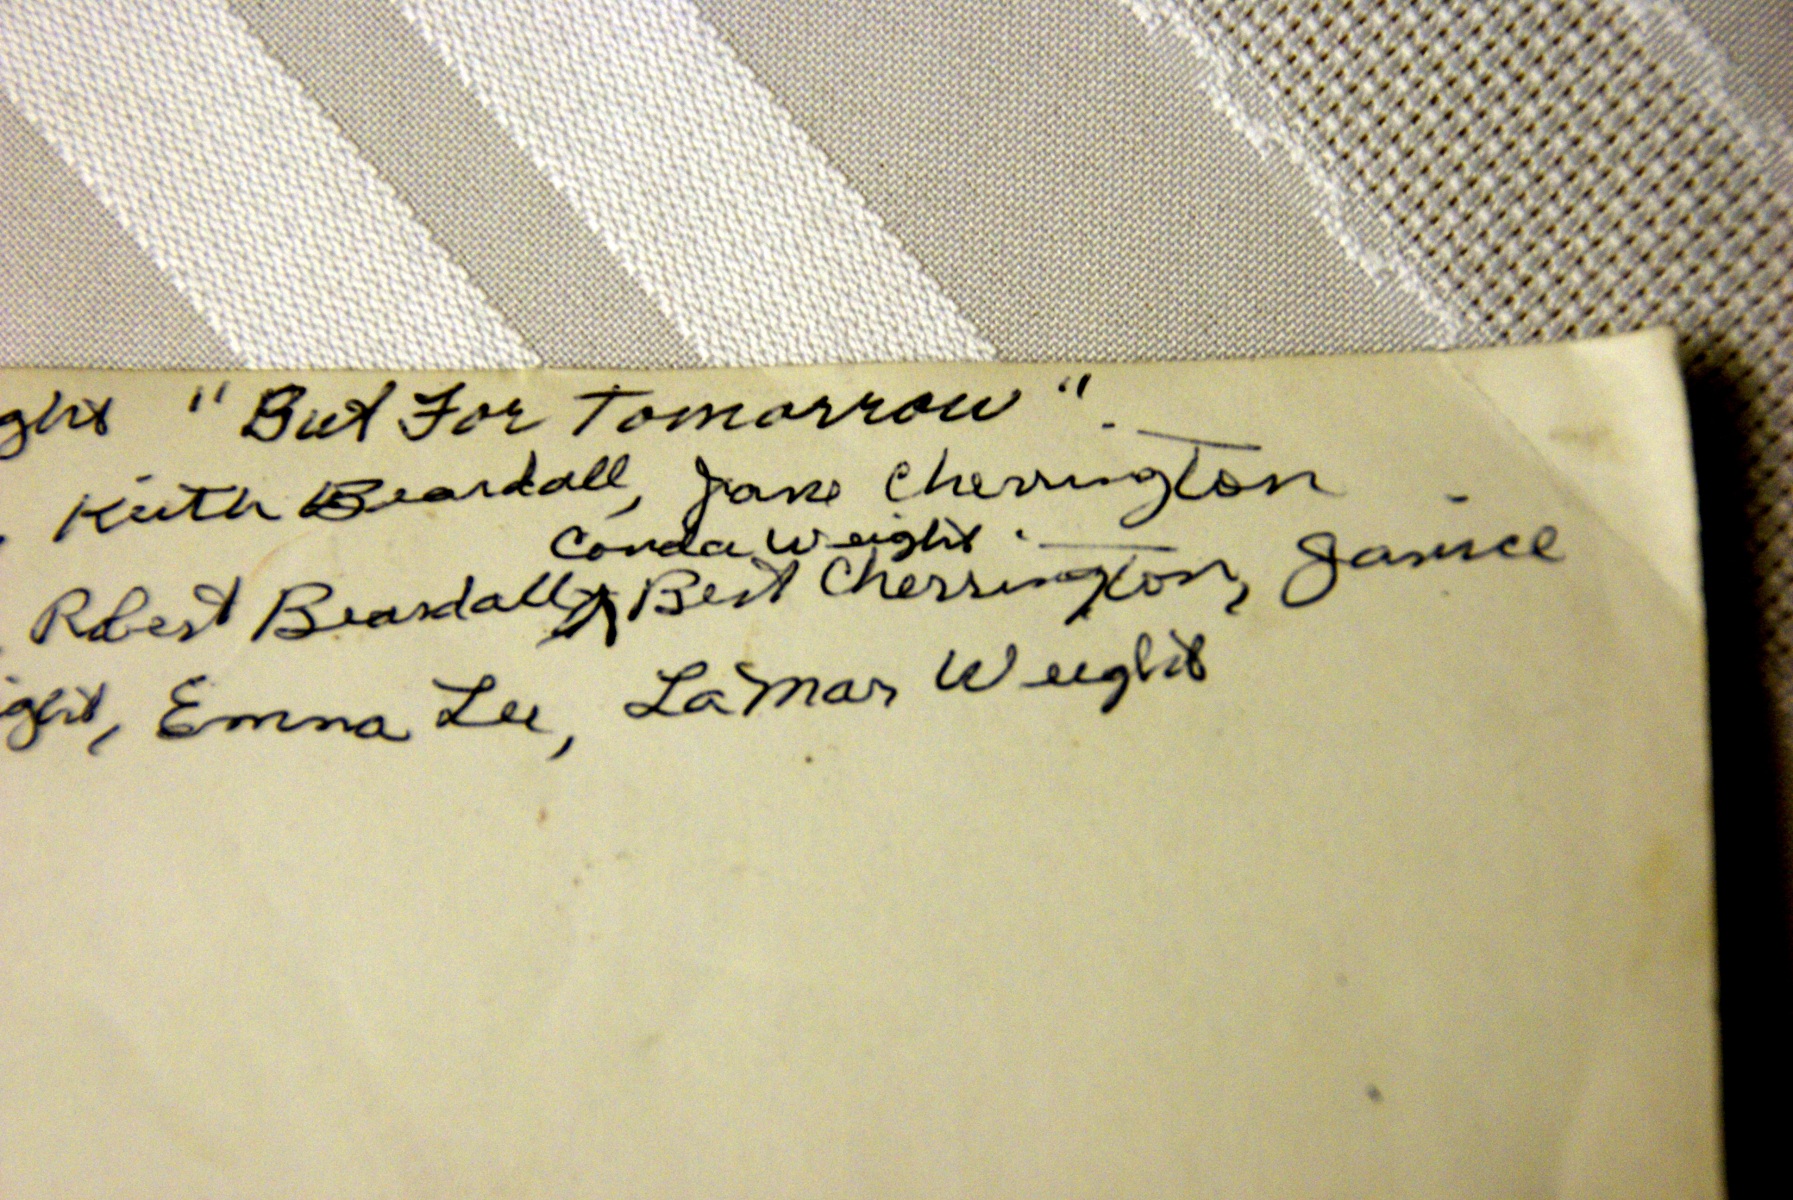 ght "But For Tomorrow".
, Keith Beardall, Jane Cherrington
Conda Weight.
Robert Beardall, Bert Cherrington, Janice
ight, Emma Lee, LaMar Weight